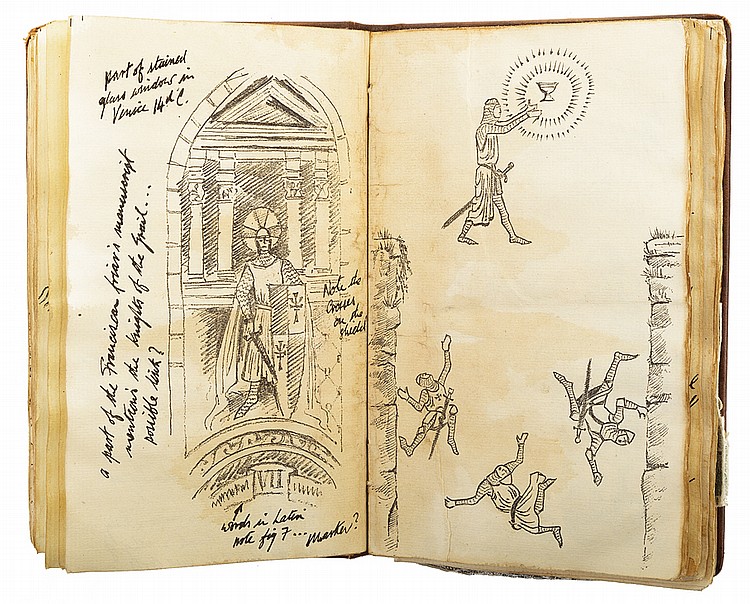 part of stained
glass window in
Venice 14th C.
a part of the Franciscan friar's manuscript
mentions the knights of the Grail...
possible link?
Note the
crosses
on the
shield
VII
words in Latin
note fig 7... marker?